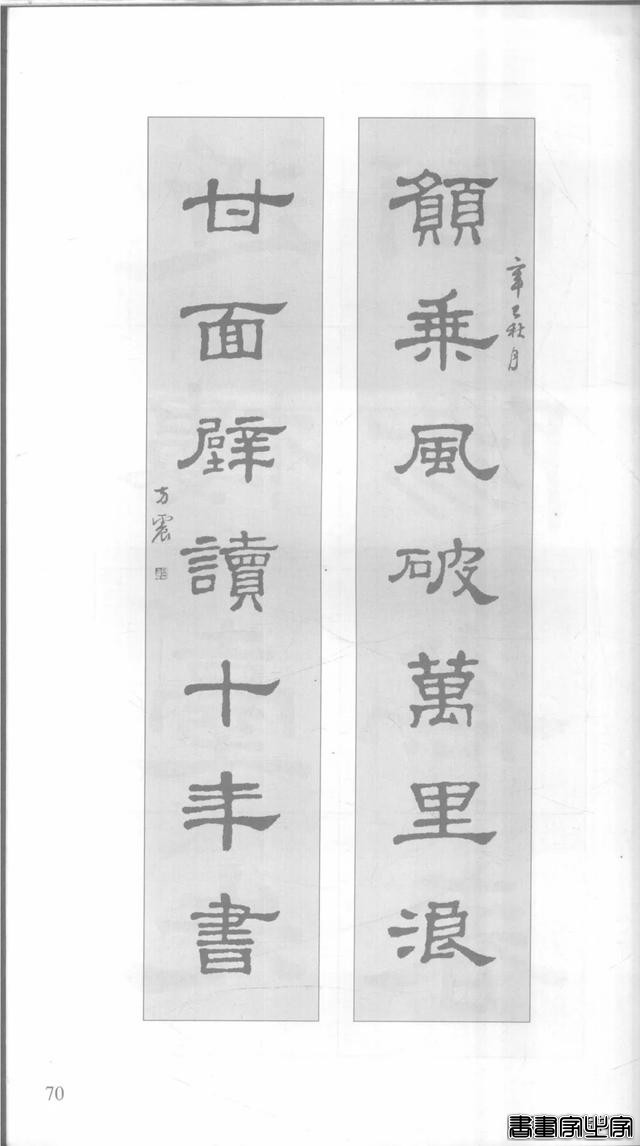 辛巳秋月
顔乘風破萬里浪
甘面壁讀十年書
方震
70
書畫家必字